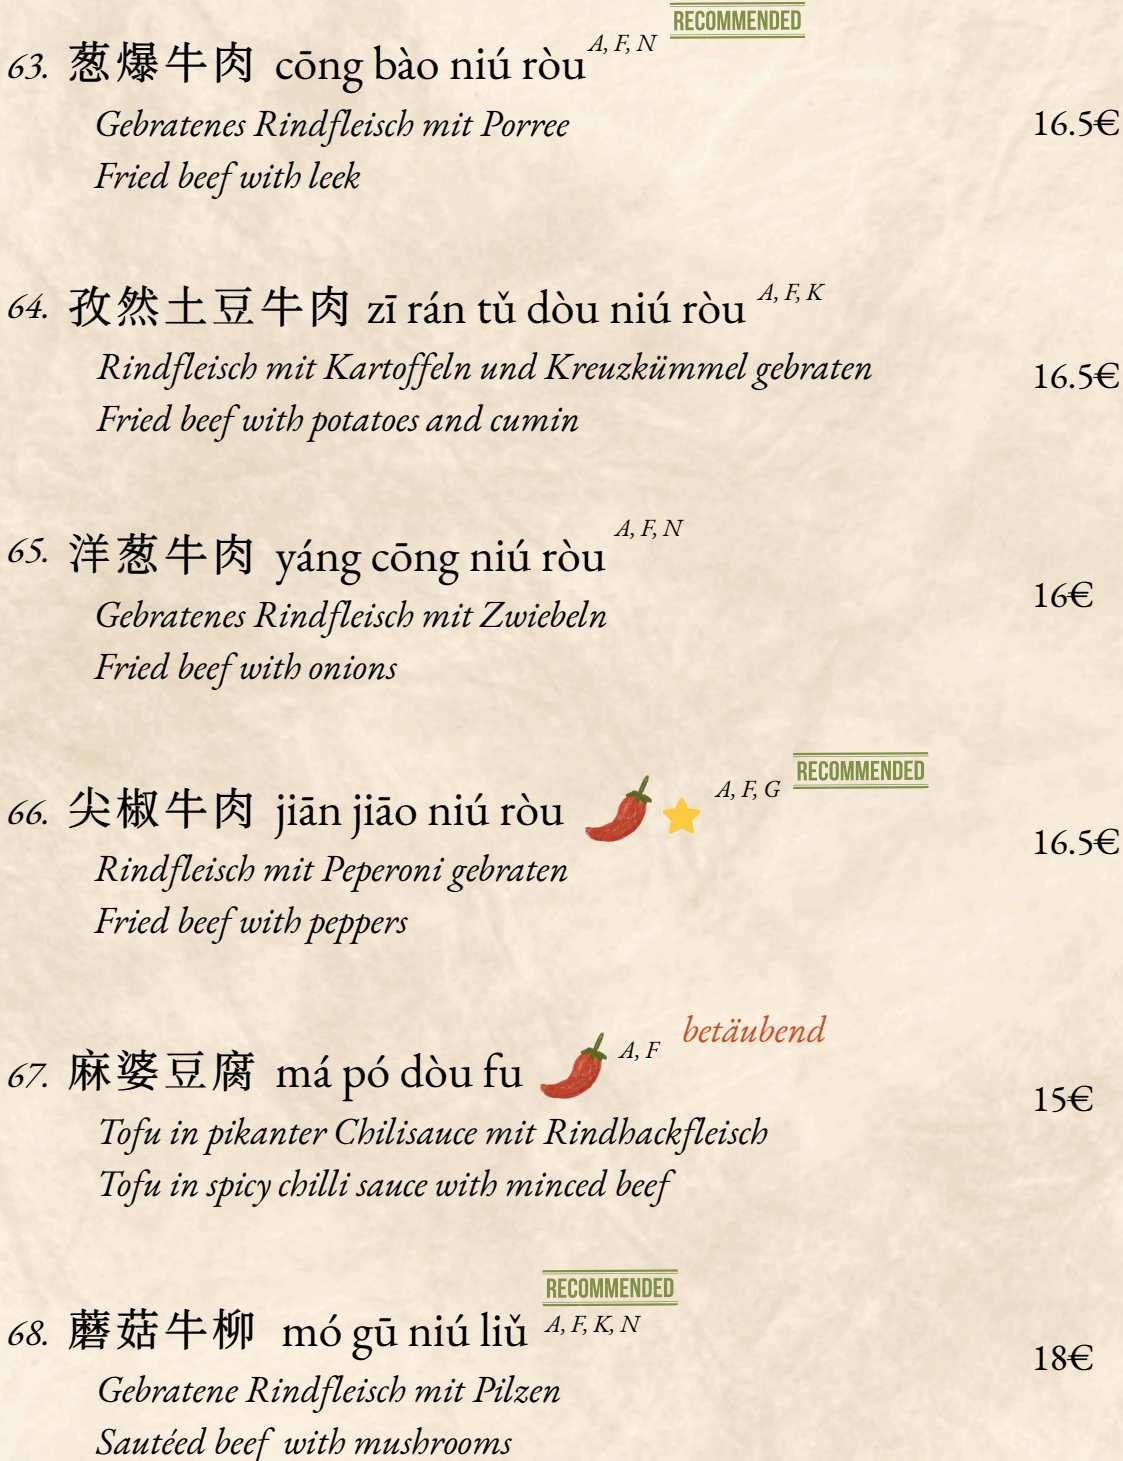 RECOMMENDED
63. 葱爆牛肉 cōng bào niú ròu A, F, N
Gebratenes Rindfleisch mit Porree
16.5€
Fried beef with leek
64. 孜然土豆牛肉 zī rán tǔ dòu niú ròu A, F, K
Rindfleisch mit Kartoffeln und Kreuzkümmel gebraten
16.5€
Fried beef with potatoes and cumin
65. 洋葱牛肉 yáng cōng niú ròu A, F, N
Gebratenes Rindfleisch mit Zwiebeln
16€
Fried beef with onions
RECOMMENDED
66. 尖椒牛肉 jiān jiāo niú ròu A, F, G
16.5€
Rindfleisch mit Peperoni gebraten
Fried beef with peppers
betäubend
67. 麻婆豆腐 má pó dòu fu A, F
15€
Tofu in pikanter Chilisauce mit Rindhackfleisch
Tofu in spicy chilli sauce with minced beef
RECOMMENDED
68. 蘑菇牛柳 mó gū niú liǔ A, F, K, N
18€
Gebratene Rindfleisch mit Pilzen
Sautéed beef with mushrooms